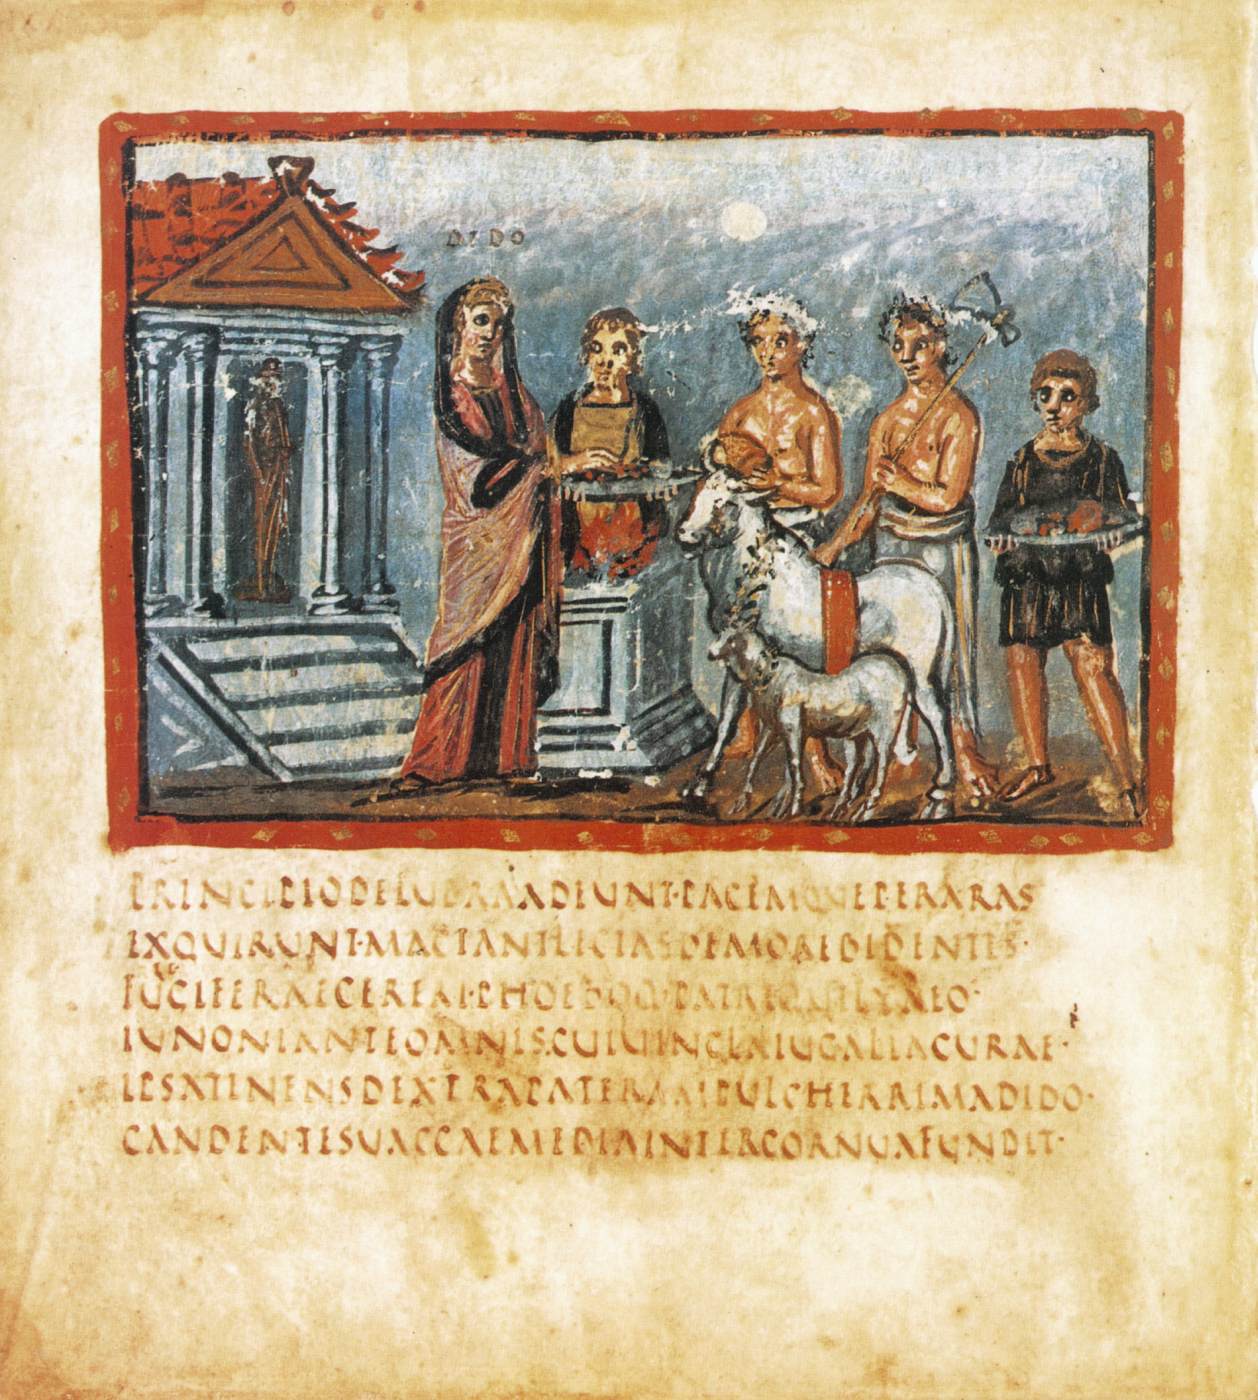 DIDO
PRINCIPIODELUBRAADEUNT·PACEMQUEPERARAS
EXQUIRUNT·MACTANTLECTASDEMOREBIDENTES·
CERERI·PHOEBOQ·PATRIQ·LYAEO·
IUNONIANTEOMNIS·CUIUINCLAIUGALIACURAE·
IPSATENENSDEXTRAPATERAMPULCHERRIMADIDO·
CANDENTESUACCAEMEDIAINTERCORNUAFUNDIT·